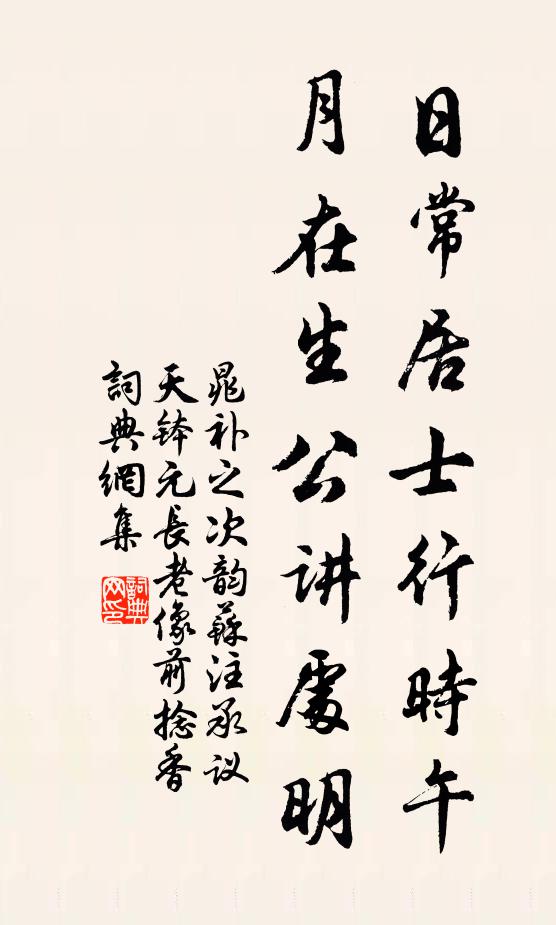 日常居士行時午
月在生公讲處明
晁补之次韵蘇注承议
天钵元長老像前捻香
詞典網集
詞典網印